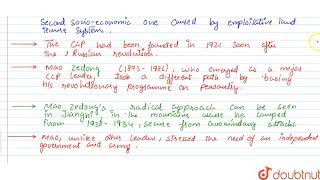 Second Socio-economic one caused by exploitative land
tenure System.
→ The CCP had been founded in 1921 soon after
the Russian revolution.
→ Mao Zedong (1893-1976), who emerged as a major
CCP leader, took a different path by basing
his revolutionary programme on peasantry.
→ Mao Zedong's radical approach can be seen
in Jiangxi, in the mountains where he camped
from 1928-1934, secure from Guomindang attacks.
→ Mao, unlike other leaders, stressed the need of an independent
government and army.
doubtnut